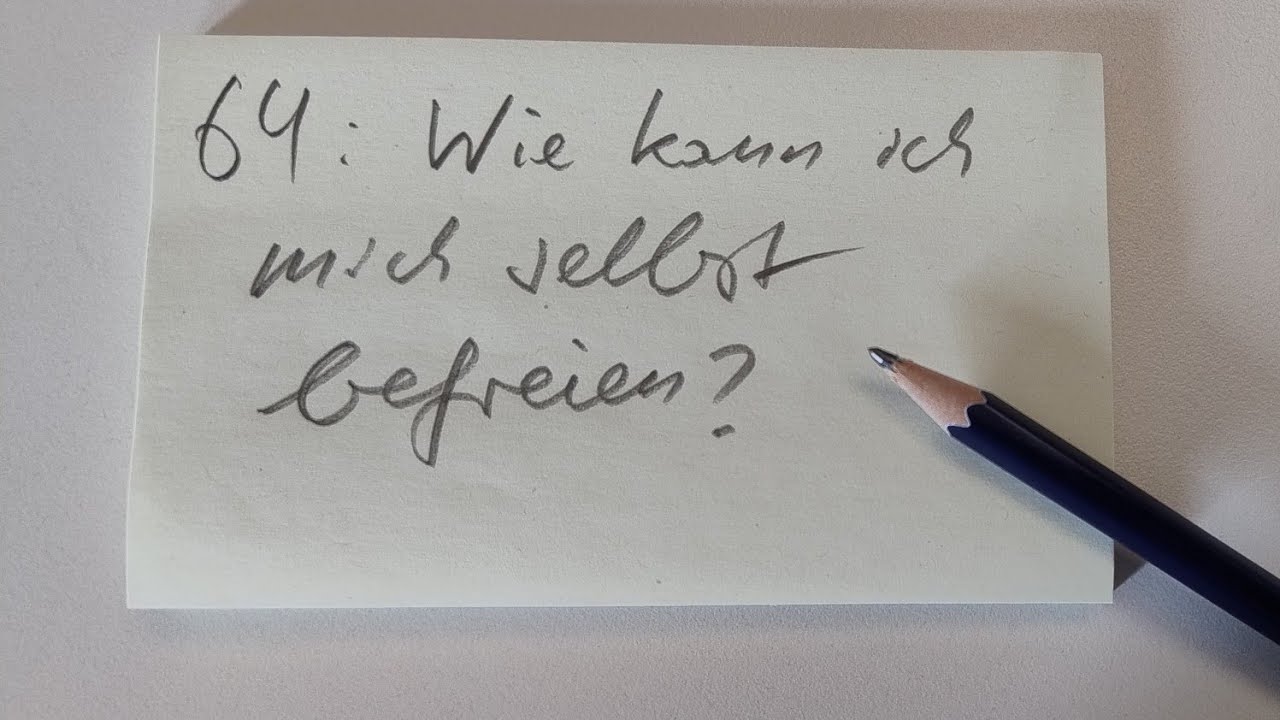 64: Wie kann ich
mich selbst
befreien?